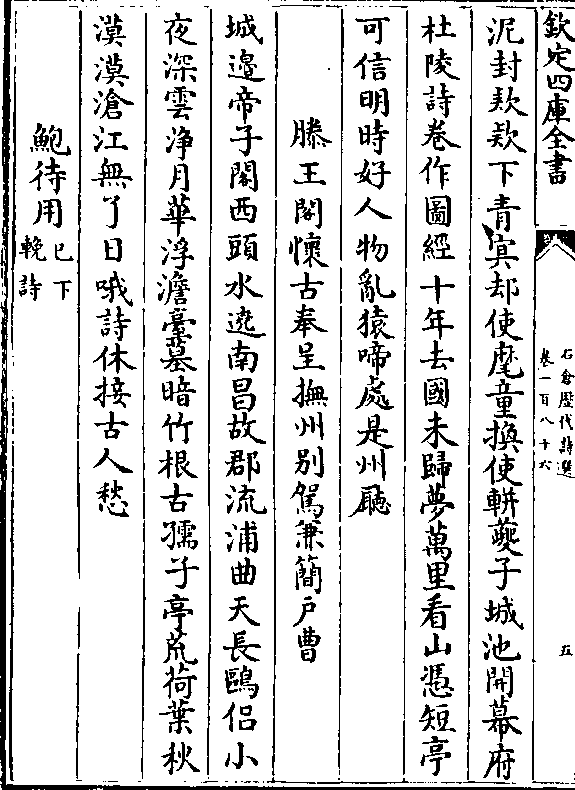 欽定四庫全書
石倉歷代詩選
卷一百八十六
五
泥封欵欵下青冥却使麾童換使軿夔子城池開幕府
杜陵詩卷作圖經十年去國未歸夢萬里看山憑短亭
可信明時好人物亂猿啼處是州廳
滕王閣懷古奉呈撫州别駕兼簡戸曹
城邉帝子閣西頭水遶南昌故郡流浦曲天長鷗侣小
夜深雲浄月華浮澹臺墓暗竹根古孺子亭荒荷葉秋
漠漠滄江無了日哦詩休接古人愁
鮑待用
已下
輓詩